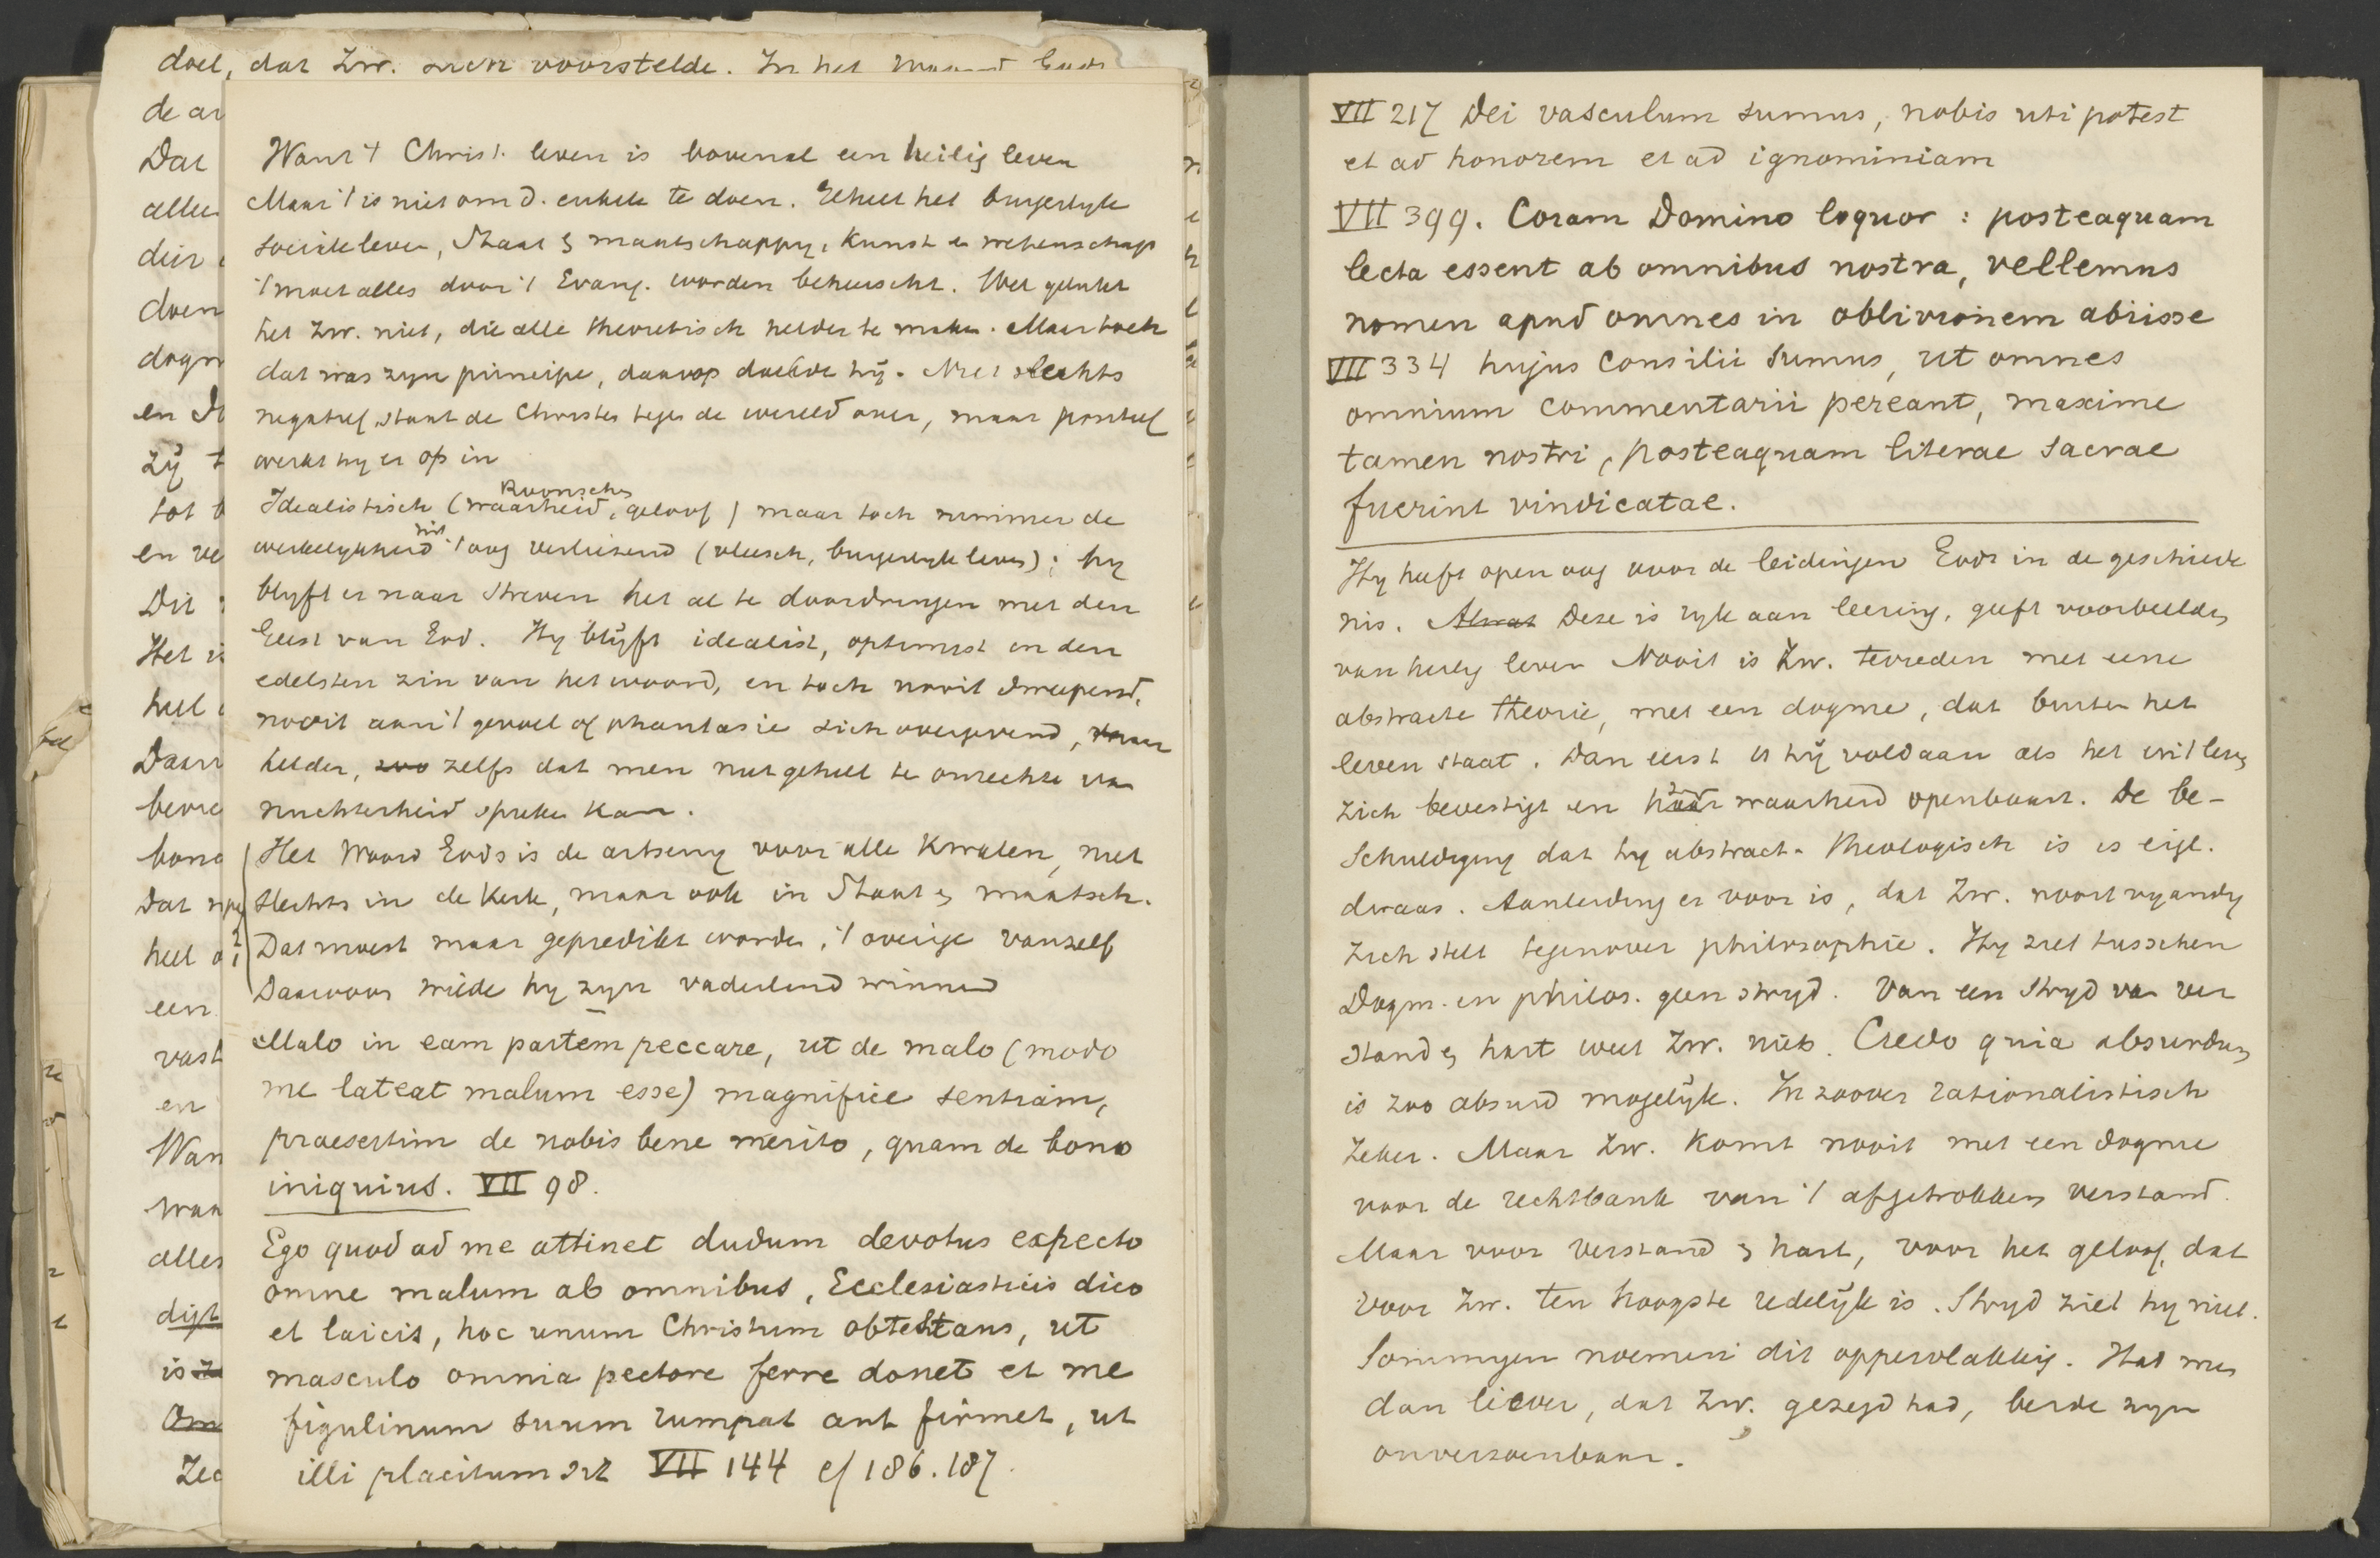 doel, dat Zw. zich voorstelde. In het Woord Gods
de ar
Dat
allee
dier
doen
dogm
en D
zij t
tot b
en ve
Dit
Het is
heel
Daar
bevre
bond
Dat
heel
een
vast
en
Wan
waa
alles
digt
is
Om
Zec
Want 't Christ. leven is bovenal een heilig leven
Maar 't is niet om d. enkele te doen. Geheel het burgerlyke
sociale leven, Staat & maatschappy, Kunst en wetenschap
't moet alles door 't Evang. worden beheerscht. Wel gelukt
het Zw. niet, die alle theoretisch helder te maken. Maar toch
dat was zyn principe, daarop doelde hij. Niet slechts
negatief staat de Christen tegen de wereld over, maar positief
werkt hy er op in
Idealistisch (waarheid, Roomsche geloof) maar toch nimmer de
werkelykheid uit 't oog verliezend (vleesch, burgerlyk leven); hy
blyft er naar streven het al te doordringen met den
Geest van God. Hy blijft idealist, optimist in den
edelsten zin van het woord, en toch nooit dweepend,
nooit aan 't gevoel of phantasie zich overgevend, maar
helder, zoo zelfs dat men niet geheel te onrechte van
nuchterheid spreken kan.
Het Woord Gods is de artseny voor alle Kwalen, niet
slechts in de Kerk, maar ook in Staat & maatsch.
Dat moest maar gepredikt worden, 't overige vanzelf
Daarvoor wilde hy zyn vaderland winnen
Malo in eam partem peccare, ut de malo (modo
me lateat malum esse) magnifice sentiam,
praesertim de nobis bene merito, quam de bono
iniquius. VII 98.
Ego quod ad me attinet dudum devotus expecto
omne malum ab omnibus, Ecclesiasticis dico
et laicis, hoc unum Christum obtestans, ut
masculo omnia pectore ferre donet et me
figulinum suum rumpat aut firmet, ut
illi placitum sit VII 144 cf 186. 187.
VII 217 Dei vasculum sumus, nobis uti potest
et ad honorem et ad ignominiam
VII 399. Coram Domino loquor: posteaquam
lecta essent ab omnibus nostra, vellemus
nomen apud omnes in oblivionem abiisse
VII 334 hujus consilii sumus, ut omnes
omnium commentarii pereant, maxime
tamen nostri, posteaquam literae sacrae
fuerint vindicatae.
Hy heeft open oog voor de leidingen Gods in de geschiede
nis. Deze is ryk aan leering, geeft voorbeelden
van heilig leven Nooit is Zw. tevreden met eene
abstracte theorie, met een dogme, dat buiten het
leven staat. Dan eerst is hij voldaan als het in 't leven
zich bevestigt en haar waarheid openbaart. De be-
schuldiging dat hy abstract-theologisch is is eigl.
dwaas. Aanleiding er voor is, dat Zw. nooit vyandig
zich stelt tegenover philosophie. Hy ziet tusschen
Dogm. en philos. geen stryd. Van een stryd van ver
stand & hart weet Zw. niets. Credo quia absurdum
is zoo absurd mogelijk. In zoover rationalistisch
zeker. Maar Zw. komt nooit met een dogme
voor de rechtbank van 't afgetrokken verstand.
Maar voor verstand & hart, voor het geloof, dat
voor Zw. ten hoogste redelijk is. Stryd ziet hy niet.
Sommigen noemen dit oppervlakkig. Had men
dan liever, dat Zw. gezegd had, beide zyn
onverzoenbaar.